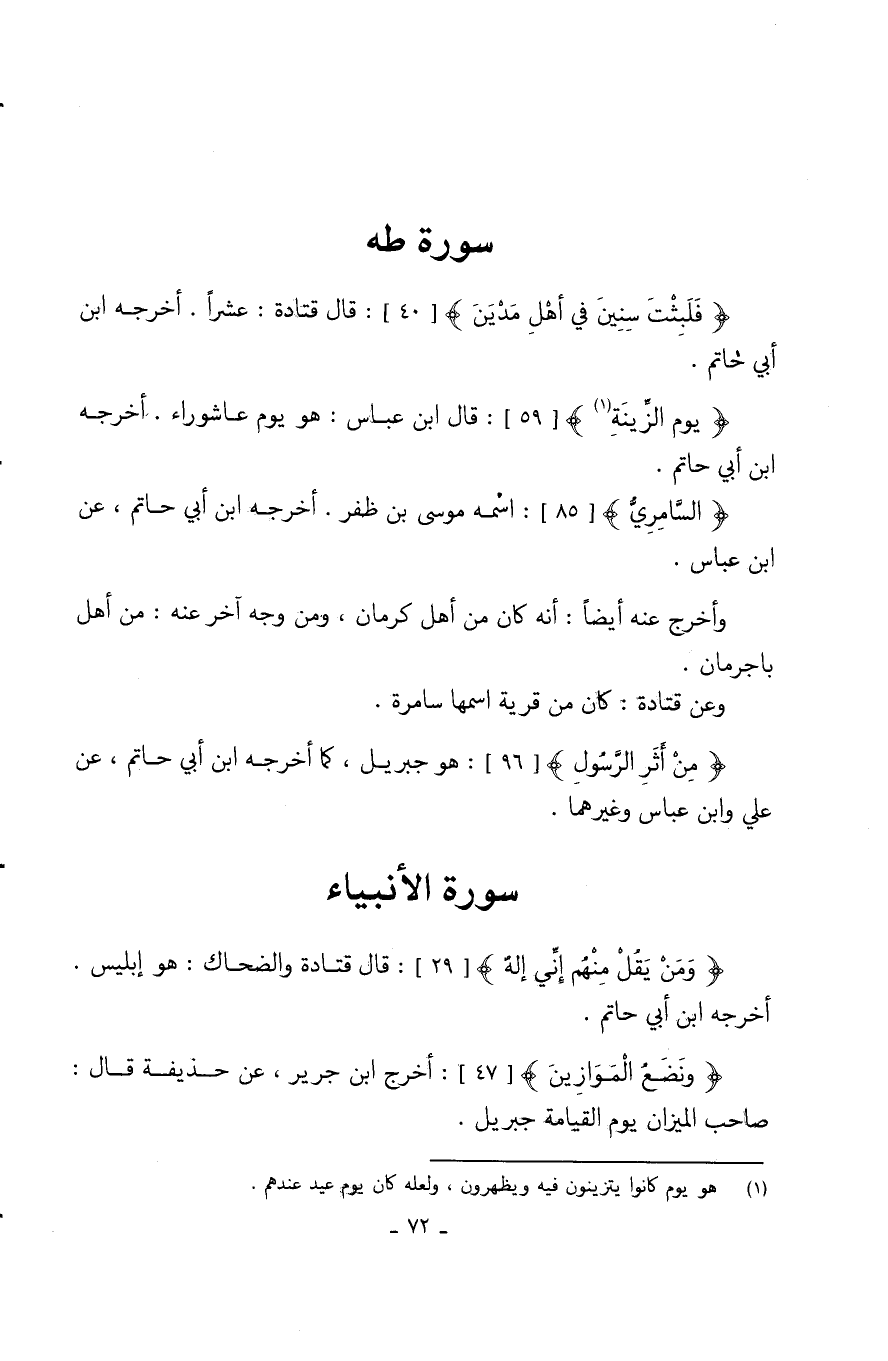 سورة طه
﴿ فَلَبِثْتَ سِنِينَ فِي أهْلِ مَدْيَنَ ﴾ [ ٤٠ ] : قال قتادة : عشراً . أخرجـه ابن
أبي حاتم .
﴿ يوم الزِّينَةِ(١) ﴾ [ ٥٩ ] : قال ابن عبـاس : هو يوم عـاشوراء . أخرجـه
ابن أبي حاتم .
﴿ السَّامِرِيُّ ﴾ [ ٨٥ ] : اسْمـه موسى بن ظفر . أخرجـه ابن أبي حـاتم ، عن
ابن عباس .
وأخرج عنه أيضاً : أنه كان من أهل كرمان ، ومن وجه آخر عنه : من أهل
باجرمان .
وعن قتادة : كان من قرية اسمها سامرة .
﴿ مِنْ أَثَرِ الرَّسُولِ ﴾ [ ٩٦ ] : هو جبريـل ، كما أخرجـه ابن أبي حـاتم ، عن
علي وابن عباس وغيرهما .
سورة الأنبياء
﴿ وَمَنْ يَقُلْ مِنْهُم إنِّي إلهٌ ﴾ [ ٢٩ ] : قال قتـادة والضحـاك : هو إبليس .
أخرجه ابن أبي حاتم .
﴿ ونَضَـعُ الْمَـوَازِينَ ﴾ [ ٤٧ ] : أخرج ابن جرير ، عن حـذيفـة قـال :
صاحب الميزان يوم القيامة جبريل .
(١) هو يوم كانوا يتزينون فيه ويظهرون ، ولعله كان يوم عيد عندهم .
- ٧٢ -